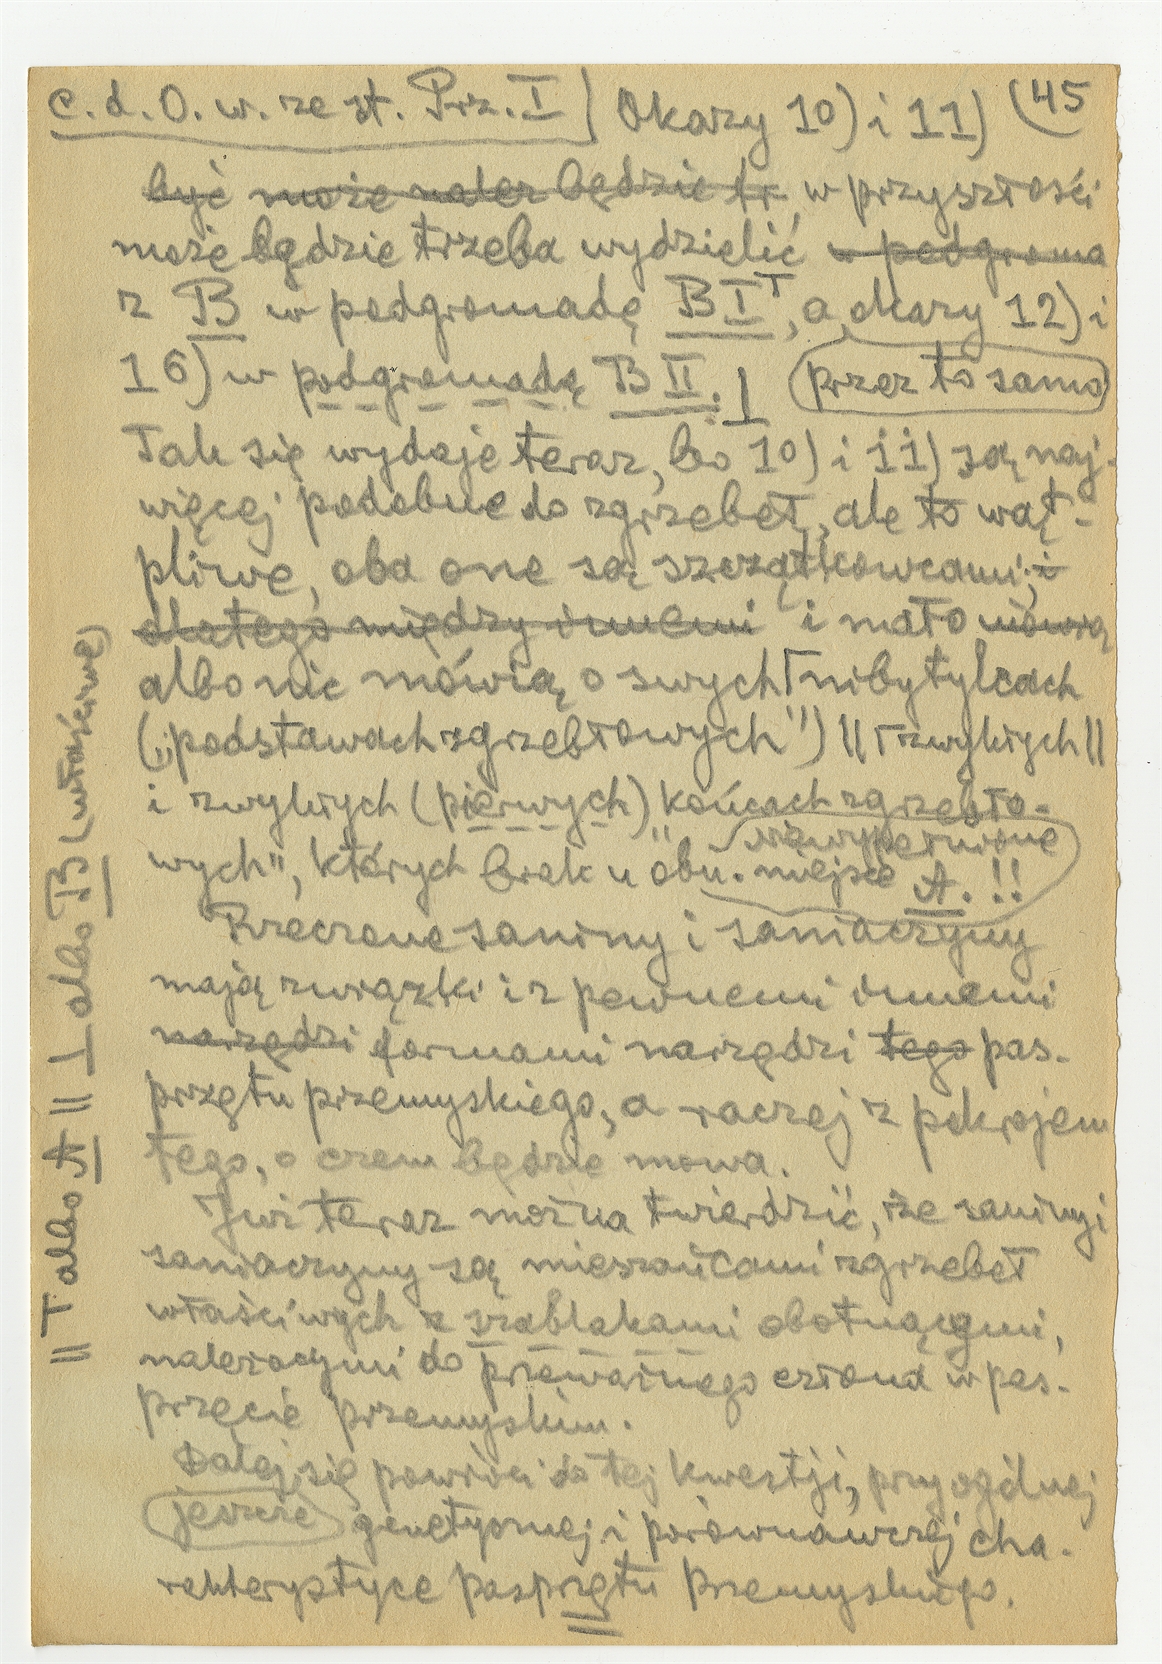 c. d. O. w. ze st. Prz. I) Okazy 10) i 11) (45
być może należ będzie tr w przyszłości
może będzie trzeba wydzielić w podgroma
z B w podgromadę B I, a okazy 12) i
16) w podgromadę B II. | (przez to samo)
Tak się wydaje teraz, bo 10) i 11) są naj-
więcej podobne do zgrzebeł, ale to wąt-
pliwe, oba one są szczątkowcami; i
dlatego między innemi i mało mówią
albo nic mówią o swych nibytylcach
(„podstawach zgrzebłowych") || zwykłych ||
i zwykłych (pierwych) „końcach zgrzebło-
wych", których brak u obu. niewypełnione miejsce A. !!
Rzeczone saniny i saniaczyny
mają związki i z pewnemi innemi
narzędzi formami narzędzi tego pas-
przętu przemyskiego, a raczej z pokrojem
tego, o czem będzie mowa.
Już teraz można twierdzić, że saniny i
saniaczyny są mieszańcami zgrzebeł
właściwych z szablakami obotnącymi,
należącymi do przeważnego członu w pas-
przęcie przemyskim.
Dalej się powróci do tej kwestji, przy ogólnej
jeszcze genetycznej i porównawczej cha-
rakterystyce pasprzętu przemyskiego.
|| T albo A || ⊥ albo B (właściwe)